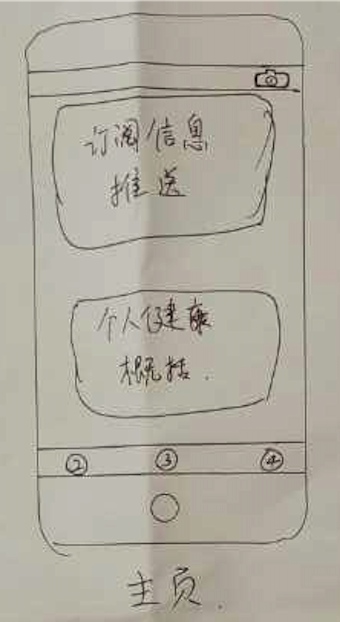 订阅信息
推送
个人健康
概括.
② ③ ④
主页.